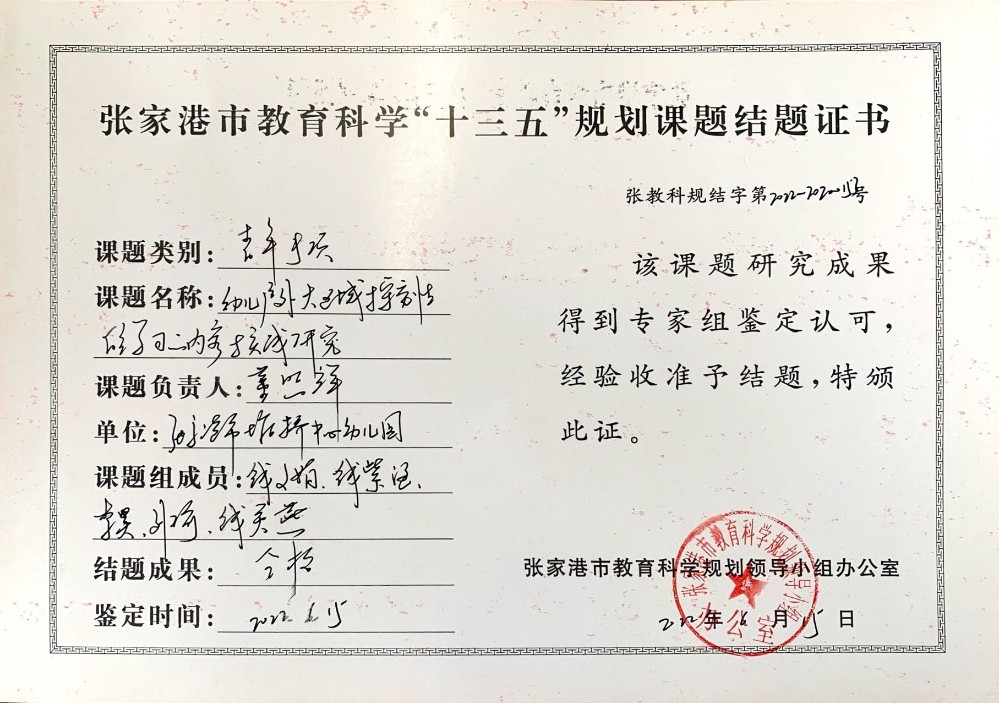 张家港市教育科学“十三五”规划课题结题证书
张教科规结字第2022-202015号
课题类别：青年专项
课题名称：幼儿户外大区域探究性
的学习内容核或研究
课题负责人：董
单位：张家港市塘桥中心幼儿园
课题组成员：钱文娟、钱紫
李昊、钱关燕
结题成果：合格
鉴定时间：2022.6.15
该课题研究成果
得到专家组鉴定认可，
经验收准予结题，特颁
此证。
张家港市教育科学规划领导小组办公室
2022年6月15日
张家港市教育科学规划领导小组
办公室